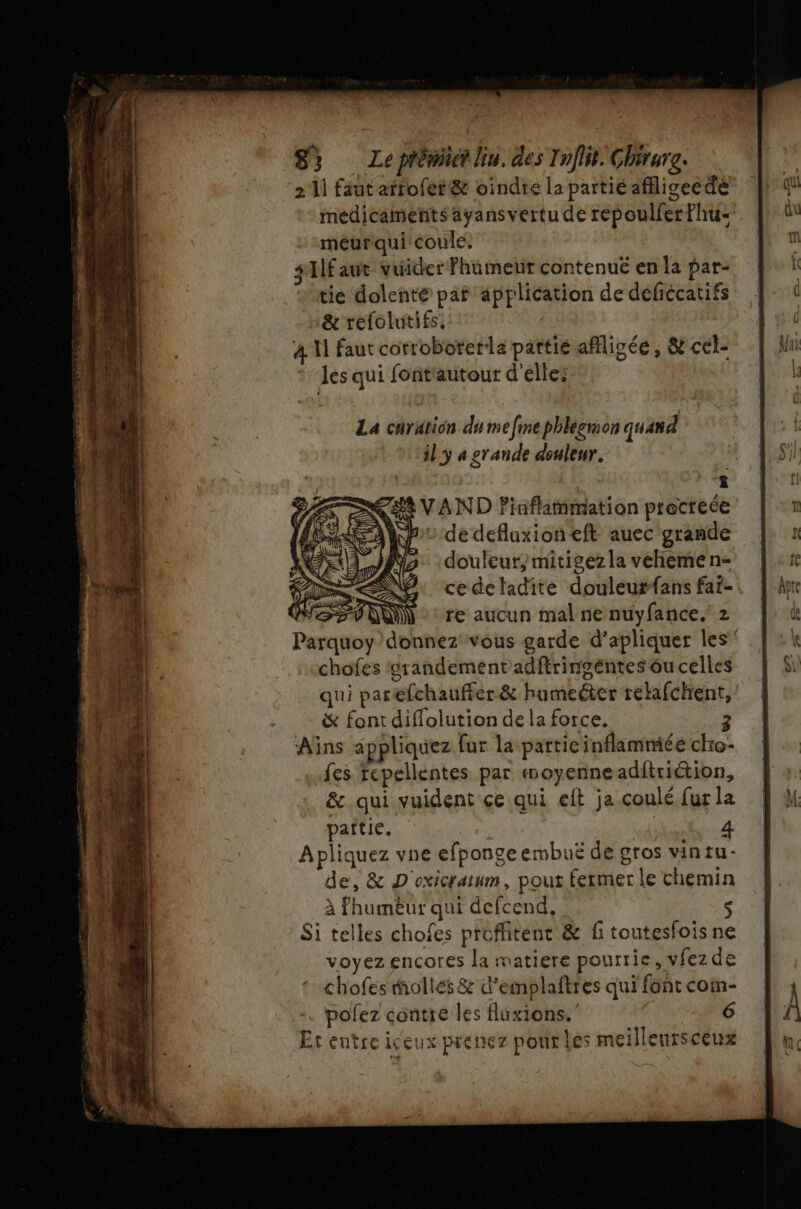 83 Le premier liu. des Inſtit. Chirurg.
2 Il faut arroſer & oindre la partie affligee de
medicaments ayans vertu de repoulſer l'hu-
meur qui coule.
3 Il faut vuider l'humeur contenuë en la par-
tie dolente par application de deſiccatifs
& reſolutifs.
4 Il faut corroborer la partie affligée, & cel-
les qui ſont autour d'elle;
La curation du meſme phlegmon quand
il y a grande douleur.
1
QVAND l'inflammation procreée
de defluxion eſt auec grande
douleur, mitigez la vehemen-
ce de ladite douleur ſans fai-
re aucun mal ne nuyſance. 2
Parquoy donnez vous garde d'apliquer les
choſes grandement adſtringentes ou celles
qui par eſchauffer & humecter relaſchent,
& font diſſolution de la force. 3
Ains appliquez ſur la partie inflammée cho-
ſes repellentes par moyenne adſtriction,
& qui vuident ce qui eſt ja coulé ſur la
partie. 4
Apliquez vne eſponge embuë de gros vin ru-
de, & D'oxicratum, pour fermer le chemin
à l'humeur qui deſcend. 5
Si telles choſes proffitent & ſi toutesfois ne
voyez encores la matiere pourrie, vſez de
choſes molles & d'emplaſtres qui ſont com-
poſez contre les fluxions. 6
Et entre iceux prenez pour les meilleurs ceux